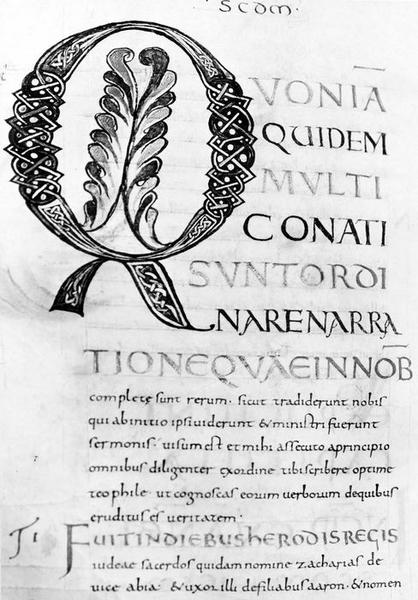 SCDM.
QVONIĀ
QUIDEM
MVLTI
CONATI
SVNTORDI
NARENARRA
TIONEQVAEINNOB̄
complete sunt rerum. sicut tradiderunt nobis
qui abinitio ipsi uiderunt & ministri fuerunt
sermonis. uisum est et mihi assecuto aprincipio
omnibus diligenter exordine tibi scribere optime
teophile. ut cognoscas eorum uerborum dequibus
eruditus es ueritatem.
FUITINDIEBUSHERODISREGIS
iudeae sacerdos quidam nomine zacharias de
uice abia. & uxor illi defiliabus aaron. & nomen